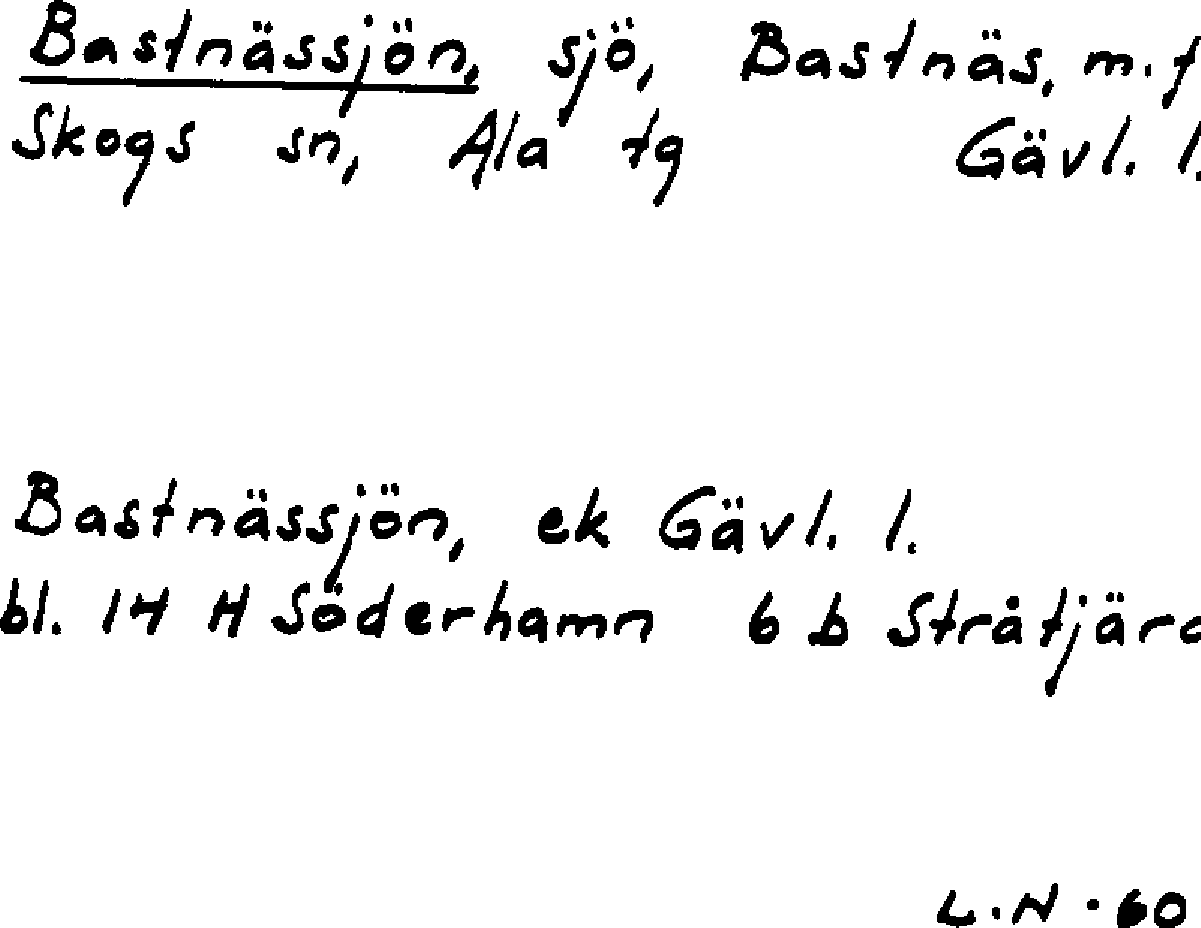 Bastnässjön, sjö, Bastnäs, m.f
Skogs sn, Ala tg Gävl. l.
Bastnässjön, ek Gävl. l.
bl. 14 H Söderhamn 6 b Stråtjära
L.N. 60